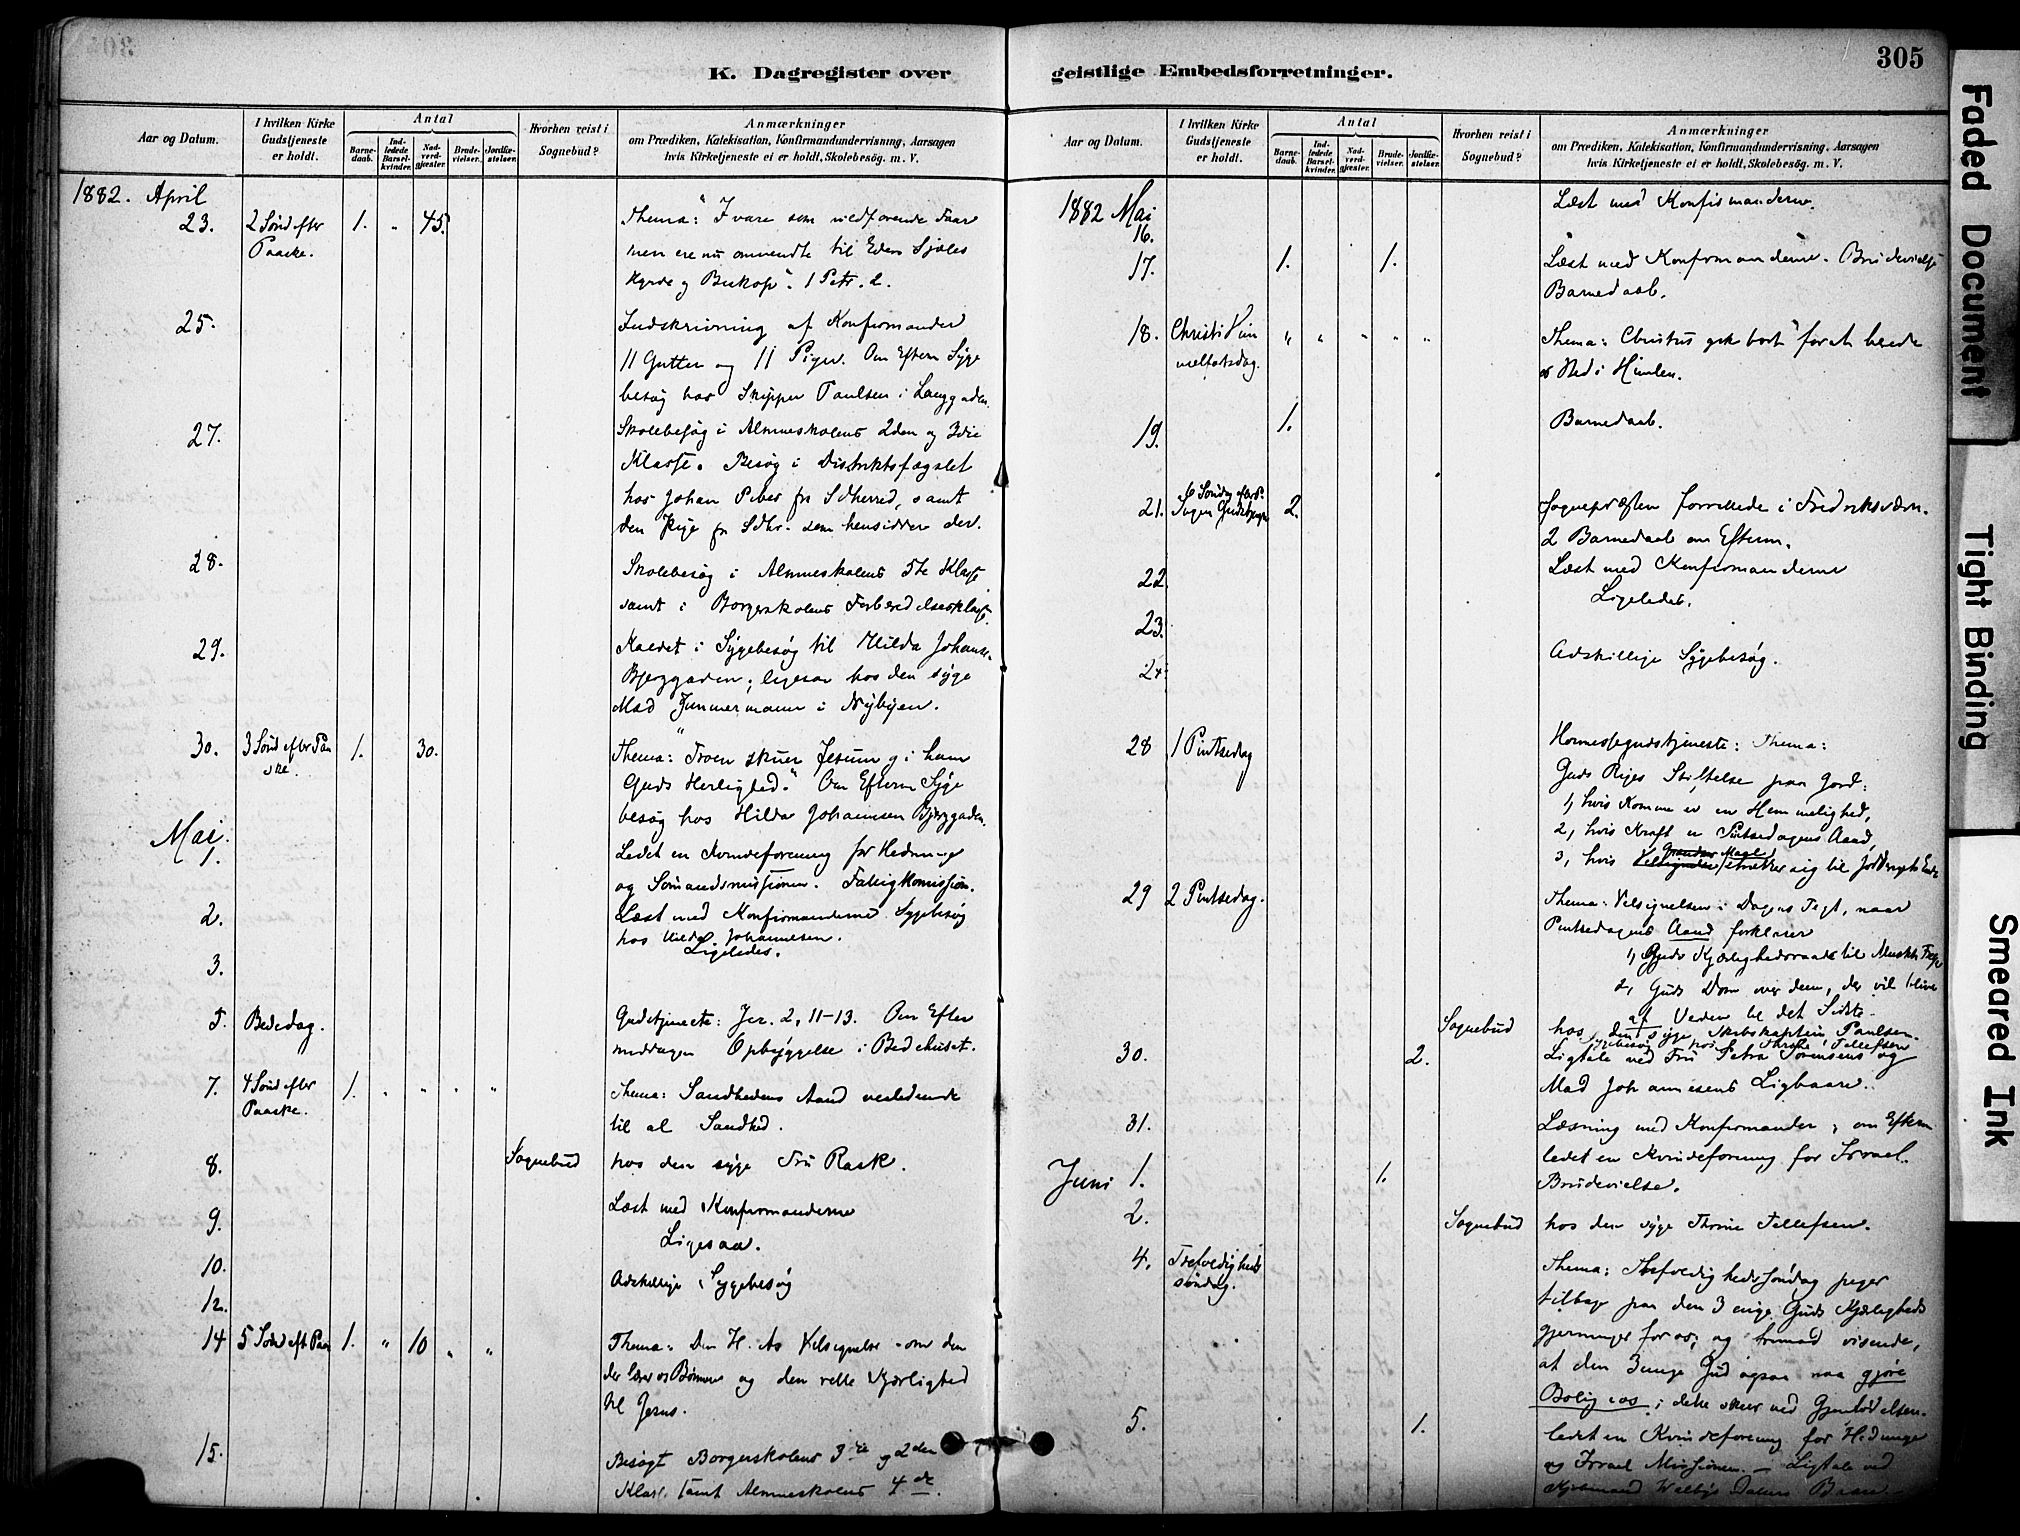 305
K. Dagregister over
Aar og Datum.
I hvilken Kirke Gudstjeneste er holdt.
Antal
Barnedaab.
Indledede Barselkvinder.
Nadverdgjæster.
Brudevielser.
Jordfæstelser.
Hvorhen reist i Sognebud?
Anmærkninger
om Prædiken, Katekisation, Konfirmandundervisning, Aarsagen
hvis Kirketjeneste ei er holdt, Skolebesøg. m. V.
1882. April
23. 2 Sønd efter 1. " 45. Thema: "I vare som vildfarende Faar
Paaske. men ere nu omvendte til Eders Sjæles
Hyrde og Biskop". 1 Petr. 2.
25. Indskrivning af Konfirmander
11 Gutter og 11 Piger. Om Efterm Syge
besøg hos Skipper Paulsen i Langgaden.
27. Skolebesøg i Almueskolens 2den og 3die
Klasse. Besøg i Distriktsfægslet
hos Johan fra Sdherred, samt
den Pige fr Sdhr. som hensidder der.
28. Skolebesøg i Almueskolens 5te Klasse
samt i Borgerskolens Forberedelsesklasse.
29. Kaldet i Sygebesøg til Hilda Johanns.
Bjerggaden; ligesaa hos den syge
Mad Zimmermann i Nybyen.
30. 3 Sønd efter Paa 1. 30. Thema: "Troen skuer Jesum og i ham
ske. Guds Herlighed." Om Efterm Syge
besøg hos Hilda Johannsen Bjerggaden.
Mai.
1. Ledet en Kvindeforening for Hedninge
og Sømandsmissionen. Fattigkomission.
2. Læst med Konfirmanderne Sygebesøg
hos Hilda Johannesen.
3. Ligeledes.
5. Bededag. Gudstjeneste: Jer. 2, 11-13. Om Efter
middagen Opbyggelse i Bedehuset.
7. 4 Sønd efter 1. " " " " Thema: Sandhedens Aand veiledende
Paaske. til al Sandhed.
8. Sognebud hos den syge Fru Rask.
9. Læst med Konfirmanderne
10. Ligesaa.
12. Adskillige Sygebesøg
14 5 Sønd eft Paa 1. " 10 " " Thema: Den H. As Velsignelse over den
der lærer os Bønnen og den rette Kjærlighed
til Jesus.
15. Besøgt Borgerskolens 3die og 2den
Klass. samt Almueskolens 4de.
geistlige Embedsforretninger.
305
Aar og Datum.
I hvilken Kirke Gudstjeneste er holdt.
Antal
Barnedaab.
Indledede Barselkvinder.
Nadverdgjæster.
Brudevielser.
Jordfæstelser.
Hvorhen reist i Sognebud?
Anmærkninger
om Prædiken, Katekisation, Konfirmandundervisning, Aarsagen
hvis Kirketjeneste ei er holdt, Skolebesøg. m. V.
1882 Mai
16. Læst med Konfirmanderne.
17. 1. 1. Læst med Konfirmanderne. Brudevielse
Barnedaab.
18. Christi Him " " " " " Thema: Christus gik bort "for at berede
melfartsdag. os Sted i Himlen.
19. 1. Barnedaab.
6 Søndag efter P.
21. Ingen Gudstjeneste 2. Sognepræsten forrettede i Fredriksværn.
2 Barnedaab om Efterm.
22 Læst med Konfirmanderne
23. Ligeledes.
24. Adskillige Sygebesøg.
28 1 Pintsedag Høimessegudstjeneste: Thema:
Guds Riges Stiftelse paa Jord:
1, hvis Komme er en Hemmelighed,
2, hvis Kraft er Pintsedagens Aand,
3, hvis Grændser strækker sig til Jorderigets Ende
29 2 Pintsedag. Thema: Velsignelsen i Dagens Text, naar
Pintsedagens Aand forklarer
1, Guds Kjærlighedsraad til Menskets Frelse
2, Guds Dom over dem, der vil blive
af Verden til det Sidste.
Sognebud hos den syge Skibskaptein Paulsen.
Sygebesøg hos Thrine Tellefsen
30. 2. Ligtale ved Fru Petra Sørensens og
Mad Johannesens Ligbaare.
31. Læsning med Konfirmander; om Efterm
ledet en Kvindeforening for Israel.
Juni 1. 1. Brudevielse.
2. Sognebud hos den syge Thrine Tellefsen.
4. Trefoldigheds Thema: Trefoldighedssøndag peger
søndag. tilbage paa den 3 enige Guds Kjærligheds
gjerninger for os, og fremad visende,
at den 3enige Gud ogsaa maa gjøre
Bolig i os; dette skeer ved Gjenfødelsen.
5. 1. ledet en Kvindeforening for Hedninge
og Israel Missionen. – Ligtale ved
Kjøbmand Baare.
Faded Document
Tight Binding
Smeared Ink